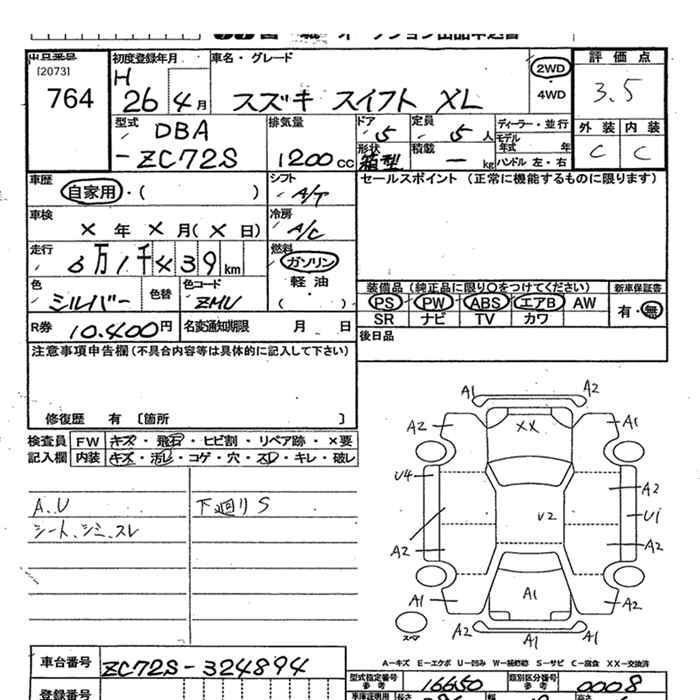 出品番号
[2073]
764
初度登録年月
H 26 4月
車名・グレード
スズキ スイフト XL
2WD
・
4WD
評価点
3.5
外装 内装
C C
型式
DBA
-ZC72S
排気量
1200 CC
ドア
5
定員
5人
形状
箱型
積載
ー kg
ディーラー・並行
モデル
年式 年
ハンドル 左・右
車歴
自家用・( )
シフト
A/T
セールスポイント (正常に機能するものに限ります)
車検
× 年 × 月(× 日)
冷房
A/C
走行
6万1千439km
燃料
ガソリン
軽油
( )
色
シルバー
色替
色コード
ZMU
R券 10,400円
名変通知期限 月 日
装備品(純正品に限り○をつけてください)
新車保証書
PS PW ABS エアB AW
SR ナビ TV カワ
有・無
注意事項申告欄(不具合内容等は具体的に記入して下さい)
後日品
修復歴 有 〔箇所 〕
検査員 FW キズ・飛石・ヒビ割・リペア跡・×要
記入欄 内装 キズ・汚レ・コゲ・穴・スレ・キレ・破レ
A.U
下廻りS
シート、シミ、スレ
A1 A2
A2 XX A1
U4
A2
V2 U1
A2 A2
A1 A1 A2
A2 A1 A1
スペア
A-キズ E-エクボ U-凹み W-補修跡 S-サビ C-腐食 XX-交換済
車台番号 ZC72S-324894
型式指定番号
参考
16650
類別区分番号
参考
0008
登録番号